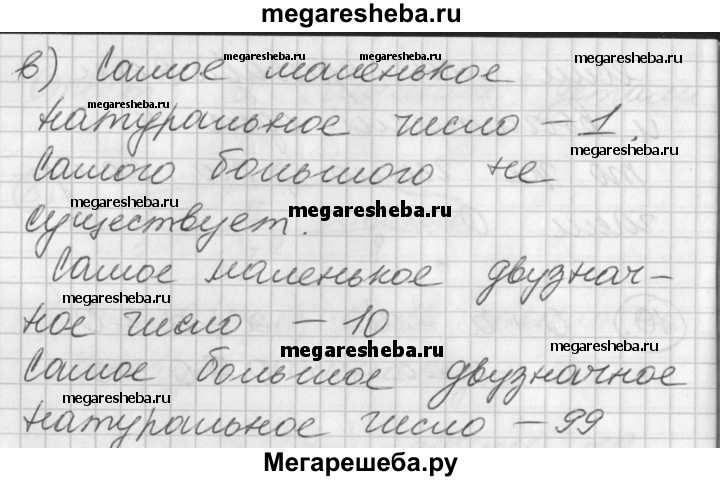 megaresheba.ru
megaresheba.ru megaresheba.ru megaresheba.ru
в) Самое маленькое
megaresheba.ru
натуральное число – 1.
megaresheba.ru
Самого большого не
megaresheba.ru megaresheba.ru
существует.
Самое маленькое двузнач-
megaresheba.ru
ное число – 10
megaresheba.ru megaresheba.ru
Самое большое двузначное
megaresheba.ru
натуральное число – 99
Мегарешеба.ру